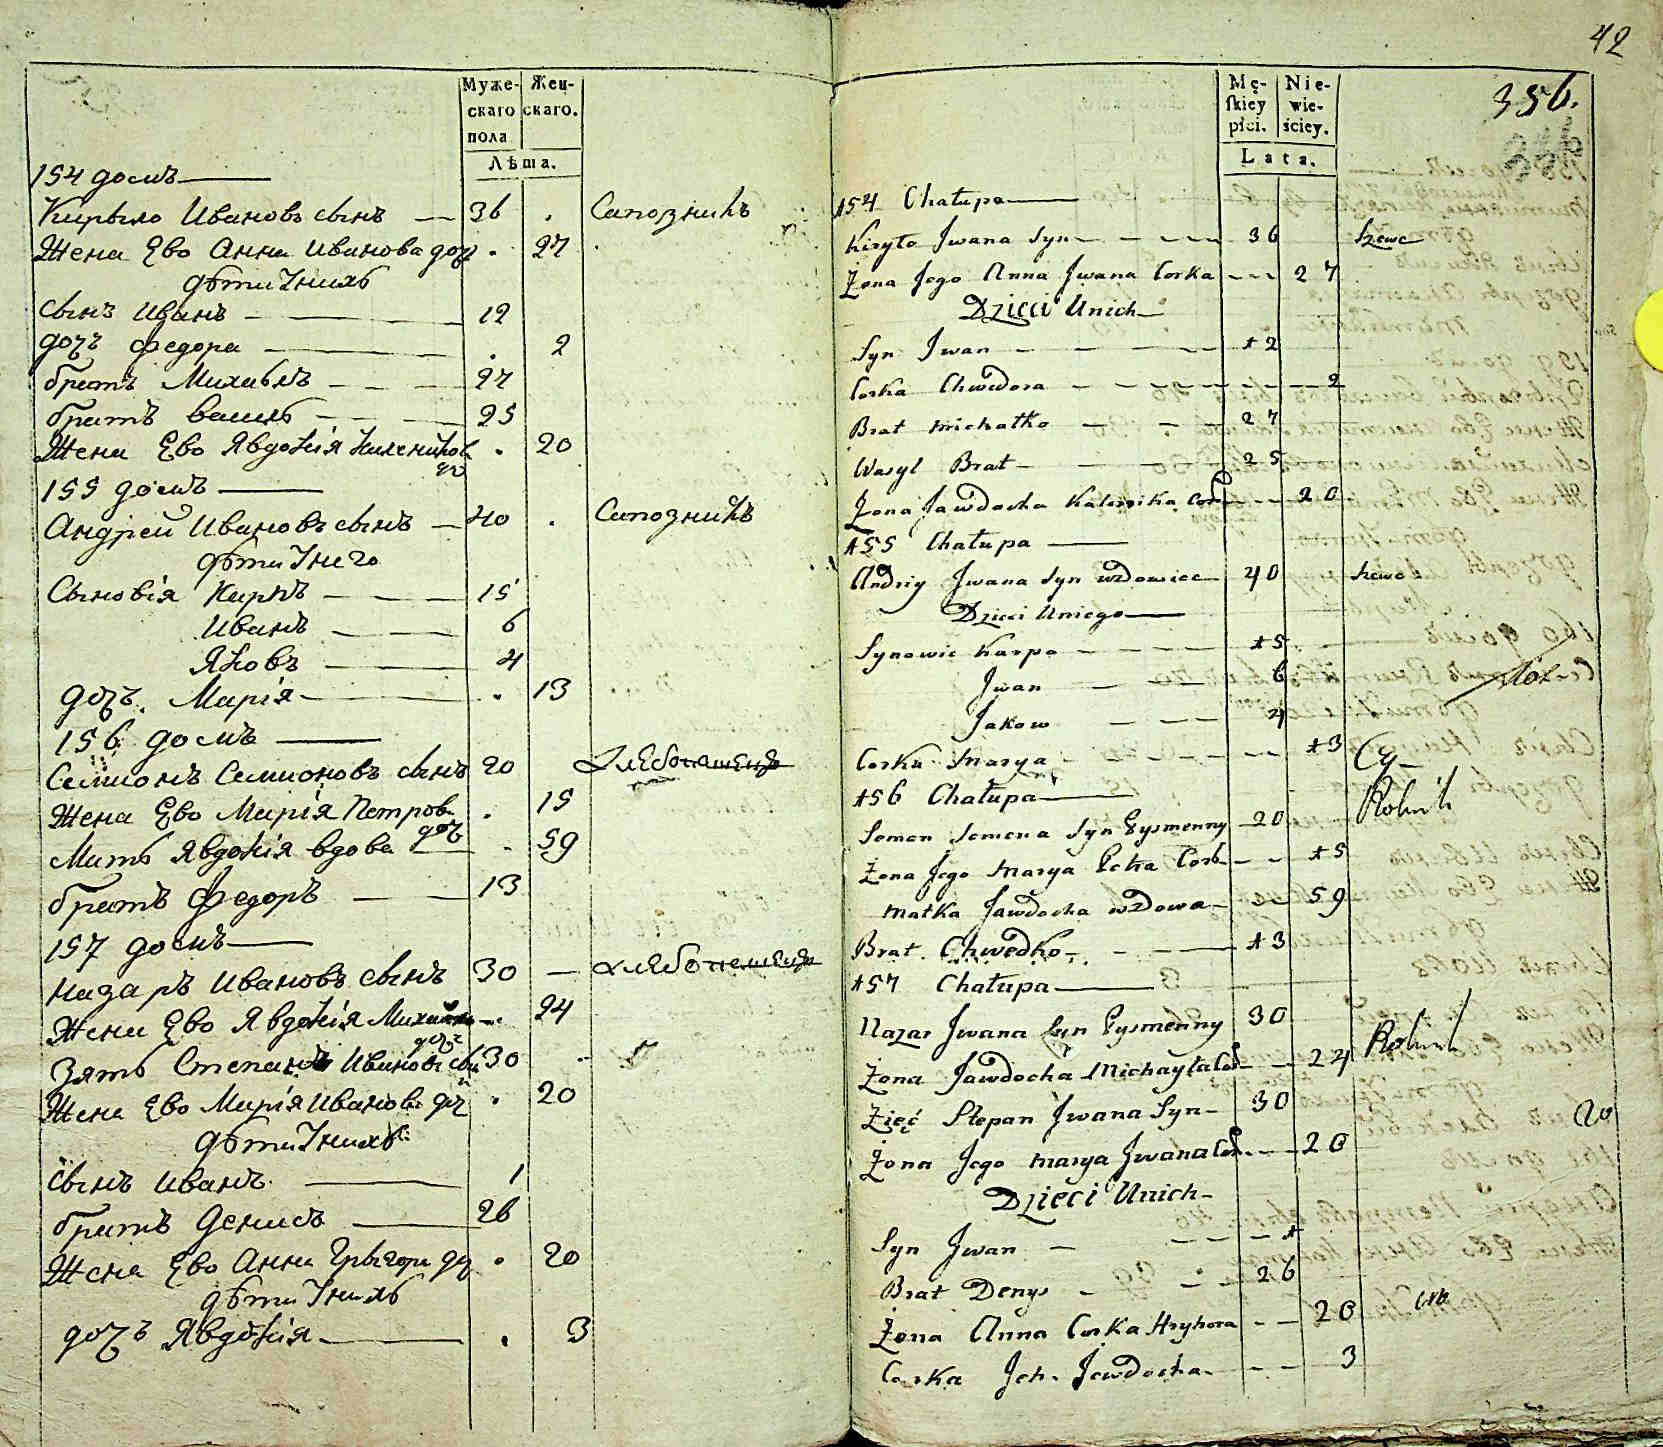 Муже-
скаго
пола
Жен-
скаго.
Лѣта.
154 домъ
Кирыло Ивановъ сынъ — 36 . Сапозникъ
Жена Ево Анна Иванова доч . 27
дѣти Униxъ
Сынъ Иванъ — 12
дочъ Федора — . 2
братъ Михаилъ — 27
братъ Василь — 25
Жена Ево Явдокія Каленіков доч . 20
155 домъ
Андрей Ивановъ сынъ — 40 . Сапозникъ
дѣти Унего
Сыновія Карпъ — 15
Иванъ — 6
Яковъ — 4
дочъ Марія — . 13
156 домъ
Семионъ Семионовъ сынъ 20 хлебопашецъ
Жена Ево Марія Петров дочъ . 15
Мать Явдокія вдова . 59
братъ Федоръ — 13
157 домъ
Назаръ Ивановъ сынъ 30 — хлебопашецъ
Жена Ево Явдокія Михайло дочъ . 24
Зять Степанъ Ивановъ сын 30
Жена Ево Марія Иванова доч . 20
дѣти Унихъ
Сынъ Иванъ — 1
братъ Денисъ — 26
Жена Ево Анна Грыгора доч . 20
дѣти Унихъ
дочъ Явдокія — . 3
42
356.
Mę-
skiey
płci.
Nie-
wie-
ściey.
Lata.
154 Chałupa
Kiryło Jwana Syn — 36 Szewc
Żona Jego Anna Jwana Corka — 27
Dzieci Unich
Syn Jwan — 12
Corka Chwedora — 2
Brat Michałko — 27
Wasyl Brat — 25
Żona Jawdocha Kalenika Cor — 20
155 Chałupa
Andriy Jwana Syn wdowiec 40 Szewc
Dzieci Uniego
Synowie Karpo — 15
Jwan — 6
Jakow — 4
Corka Marya — 13
156 Chałupa
Semen Semena Syn Pysmenny 20 Rolnik
Żona Jego Marya Petra Cork — 15
Matka Jawdocha wdowa — 59
Brat Chwedko — 13
157 Chałupa
Nazar Jwana Syn Pysmenny 30 Rolnik
Żona Jawdocha Michayła Cor — 24
Zięć Stepan Jwana Syn — 30
Żona Jego Marya Jwana Cor — 20
20
Dzieci Unich
Syn Jwan — 1
Brat Denys — 26
Żona Anna Corka Hryhora — 20
Corka Jch Jewdocha — 3